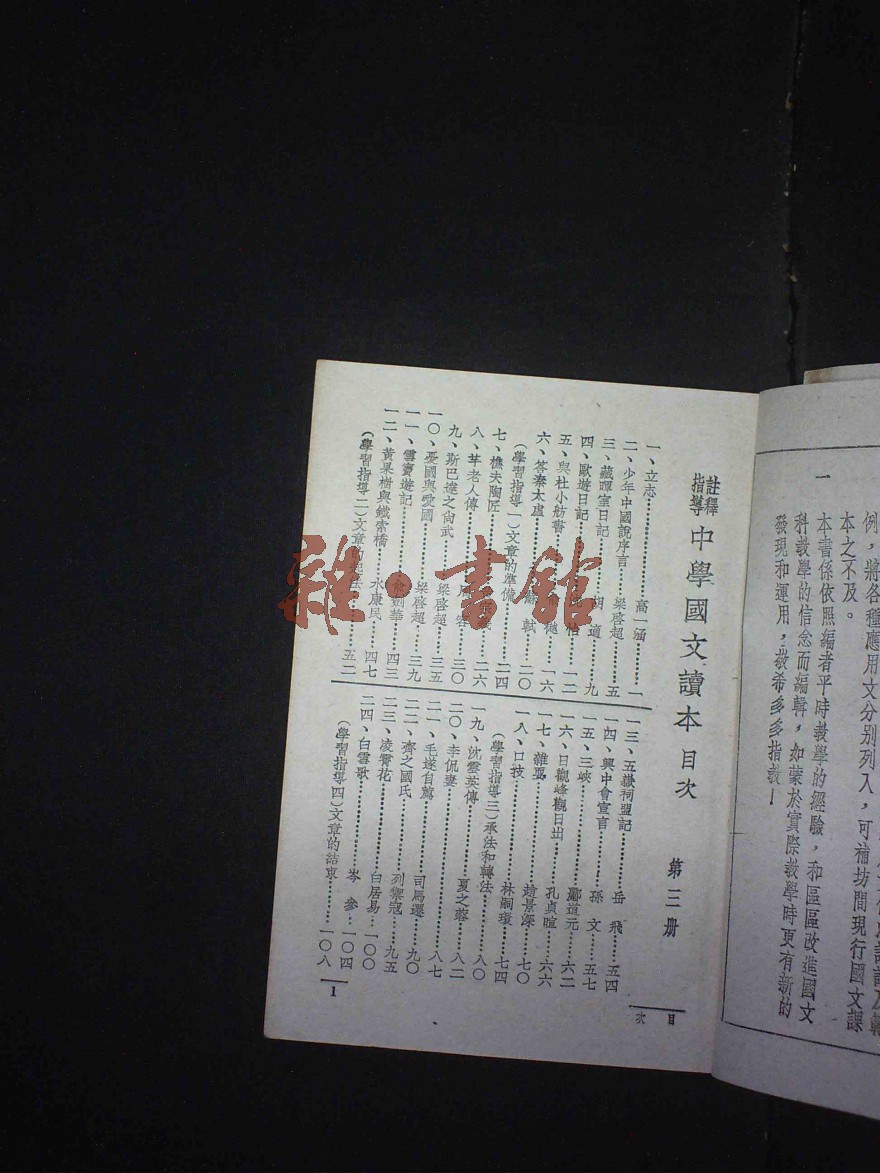 例，將各種應用文分別列入，可補坊間現行國文課
本之不及。
一 本書係依照編者平時教學的經驗，和區區改進國文
科教學的信念而編輯，如蒙於實際教學時更有新的
發現和運用，敬希多多指教！
註釋指導 中學國文讀本 目次 第三册
一、立志……高一涵……一
二、少年中國說序言……梁啓超……五
三、藏暉室日記……胡適……九
四、歐遊日記……一二
五、與杜小舫書……樾……一六
六、答秦太虛……蘇軾……二〇
(學習指導一)文章的準備……二四
七、樵夫陶匠……二六
八、芋老人傳……周容……三〇
九、斯巴達之尚武……梁啓超……三五
一〇、憂國與愛國……梁啓超……三九
一一、雪竇遊記……俞劍華……四三
一二、黃果樹與鐵索橋……水康民……四七
(學習指導二)文章的起法……五二
一三、五嶽祠盟記……岳飛……五四
一四、興中會宣言……孫文……五七
一五、三峽……酈道元……六二
一六、日觀峰觀日出……孔貞瑄……六六
一七、雜耍……趙景深……七〇
一八、口技……林嗣環……七四
(學習指導三)承法和轉法……八〇
一九、沈雲英傳……夏之蓉……八二
二〇、李侃妻……八七
二一、毛遂自薦……司馬遷……九〇
二二、齊之國氏……列禦寇……九五
二三、凌霄花……白居易……一〇〇
二四、白雪歌……岑參……一〇四
(學習指導四)文章的結束……一〇八
目次
1
雜·書館